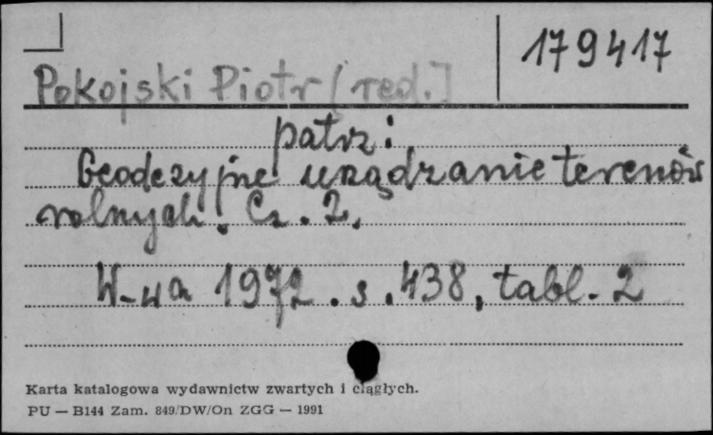 179417
Pokojski Piotr [red.]
patrz:
Geodezyjne urządzanie terenów
rolnych. Cz. 2.
W-wa 1972. s. 438, tabl. 2
Karta katalogowa wydawnictw zwartych i ciągłych.
PU — B144 Zam. 849/DW/On ZGG — 1991